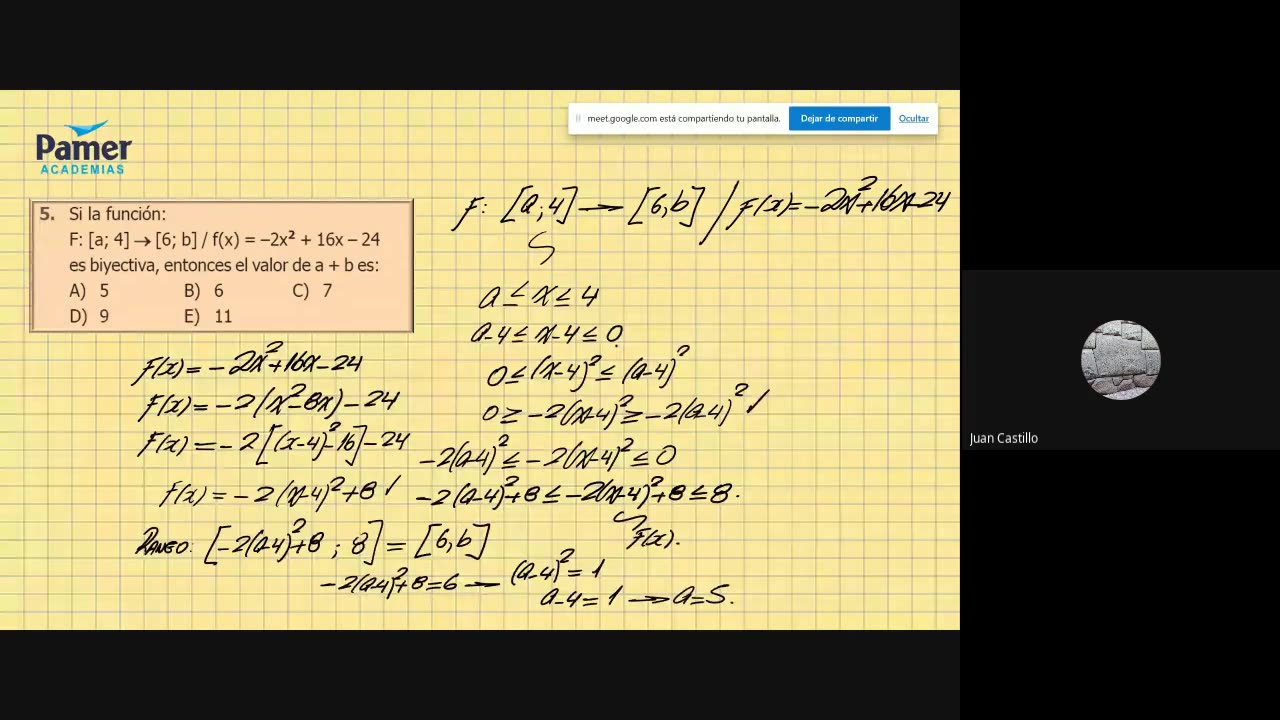 meet.google.com está compartiendo tu pantalla. Dejar de compartir Ocultar
Pamer
ACADEMIAS
5. Si la función:
F: [a; 4] → [6; b] / f(x) = –2x² + 16x – 24
es biyectiva, entonces el valor de a + b es:
A) 5 B) 6 C) 7
D) 9 E) 11
F: [a; 4] → [6, b] / F(x) = -2x² + 16x - 24
a ≤ x ≤ 4
a-4 ≤ x-4 ≤ 0.
0 ≤ (x-4)² ≤ (a-4)²
0 ≥ -2(x-4)² ≥ -2(a-4)² ✓
-2(a-4)² ≤ -2(x-4)² ≤ 0
-2(a-4)² + 8 ≤ -2(x-4)² + 8 ≤ 8.
F(x).
F(x) = -2x² + 16x - 24
F(x) = -2(x² - 8x) - 24
F(x) = -2[(x-4)² - 16] - 24
F(x) = -2(x-4)² + 8 ✓
RANGO: [-2(a-4)² + 8 ; 8] = [6, b]
-2(a-4)² + 8 = 6 → (a-4)² = 1
a-4 = 1 → a = 5.
Juan Castillo